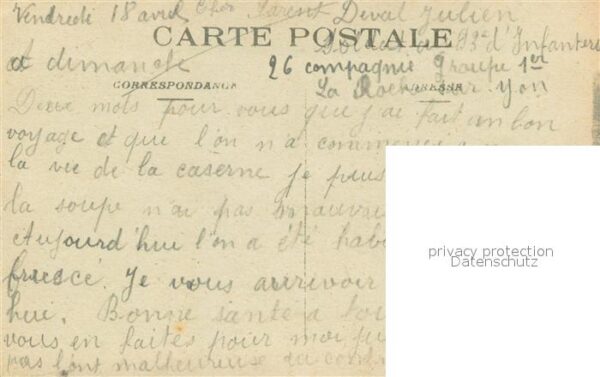 Vendredi 18 avril Cher Parent Deval Julien
CARTE POSTALE
Soldat au 93e d'Infanterie
et dimanche
26 compagnie Groupe 1er
La Roche sur Yon
CORRESPONDANCE
ADRESSE
Deux mots pour vous que j'ai fait un bon
voyage et que l'on a commencé
la vie de la caserne je puis
la soupe n'ai pas mauvais
Aujourd'hui l'on a été habi
. Je vous
hui. Bonne santé a tou
vous en faites pour moi
pas l'ont malheureuse au contr
privacy protection
Datenschutz